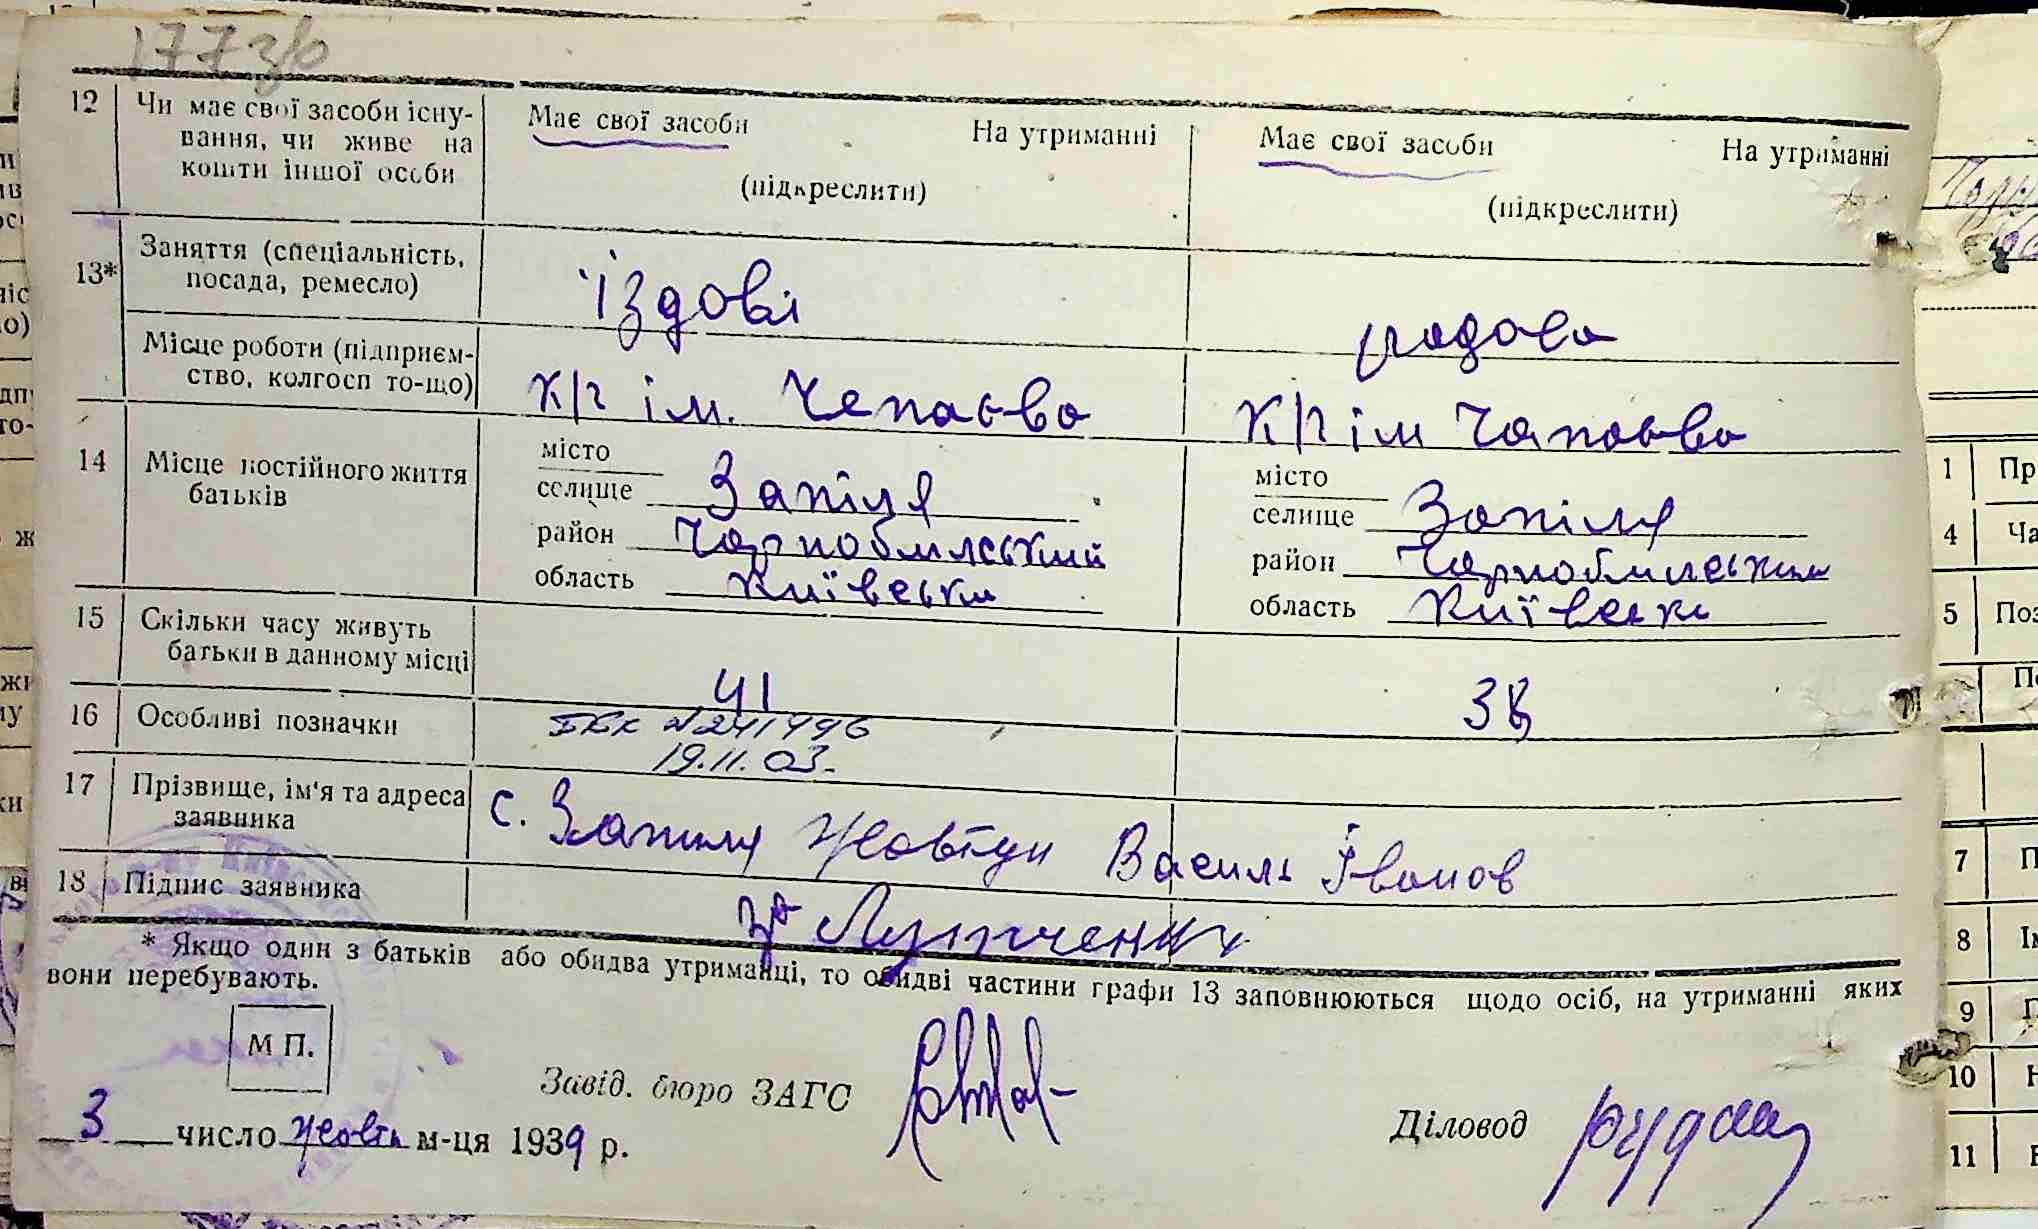 177 зв
12 Чи має свої засоби існу-
вання, чи живе на
кошти іншої особи
Має свої засоби На утриманні
(підкреслити)
Має свої засоби На утриманні
(підкреслити)
13* Заняття (спеціальність,
посада, ремесло)
їздові
рядова
Місце роботи (підприєм-
ство, колгосп то-що)
к/г ім. Чепаєва
к/г ім Чапаєва
14 Місце постійного життя
батьків
місто
селище Запілля
район Чорнобильський
область Київська
місто
селище Запілля
район Чорнобильський
область Київська
15 Скільки часу живуть
батьки в данному місці
41
38
16 Особливі позначки
№241496
19.11.03.
17 Прізвище, ім'я та адреса
заявника
с. Запілля Жовтун Василь Іванов
18 Підпис заявника
за
* Якщо один з батьків або обидва утриманці, то обидві частини графи 13 заповнюються щодо осіб, на утриманні яких
вони перебувають.
М П.
Завід. бюро ЗАГС
Діловод
3 число Жовтн м-ця 1939 р.
1 Пр
4 Ча
5 Поз
7 П
8 Ім
9
10
11